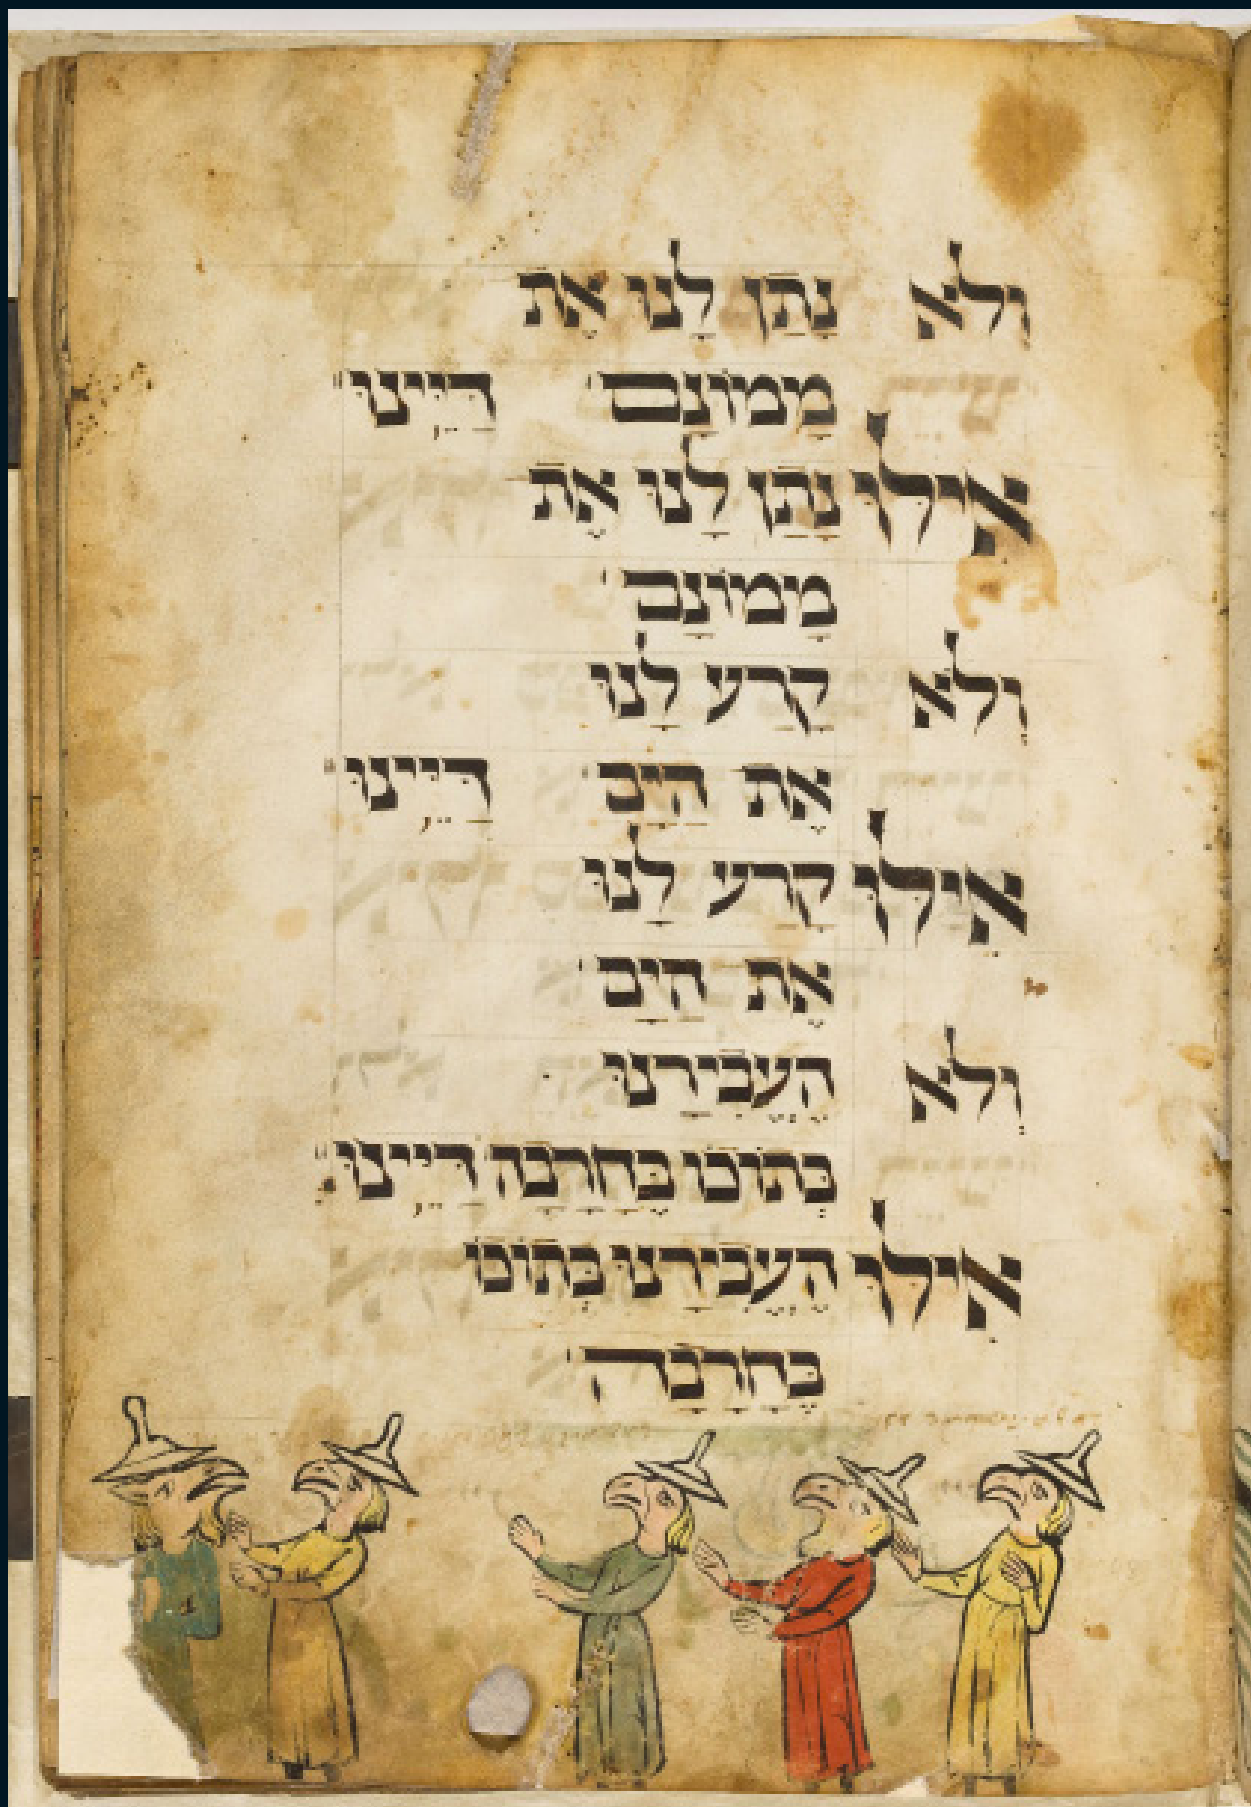 וְלֹא נָתַן לָנוּ אֶת
מָמוֹנָם דַּיֵּינוּ
אִילּוּ נָתַן לָנוּ אֶת
מָמוֹנָם
וְלֹא קָרַע לָנוּ
אֶת הַיָּם דַּיֵּינוּ
אִילּוּ קָרַע לָנוּ
אֶת הַיָּם
וְלֹא הֶעֱבִירָנוּ
בְּתוֹכוֹ בֶּחָרָבָה דַּיֵּינוּ
אִילּוּ הֶעֱבִירָנוּ בְּתוֹכוֹ
בֶּחָרָבָה